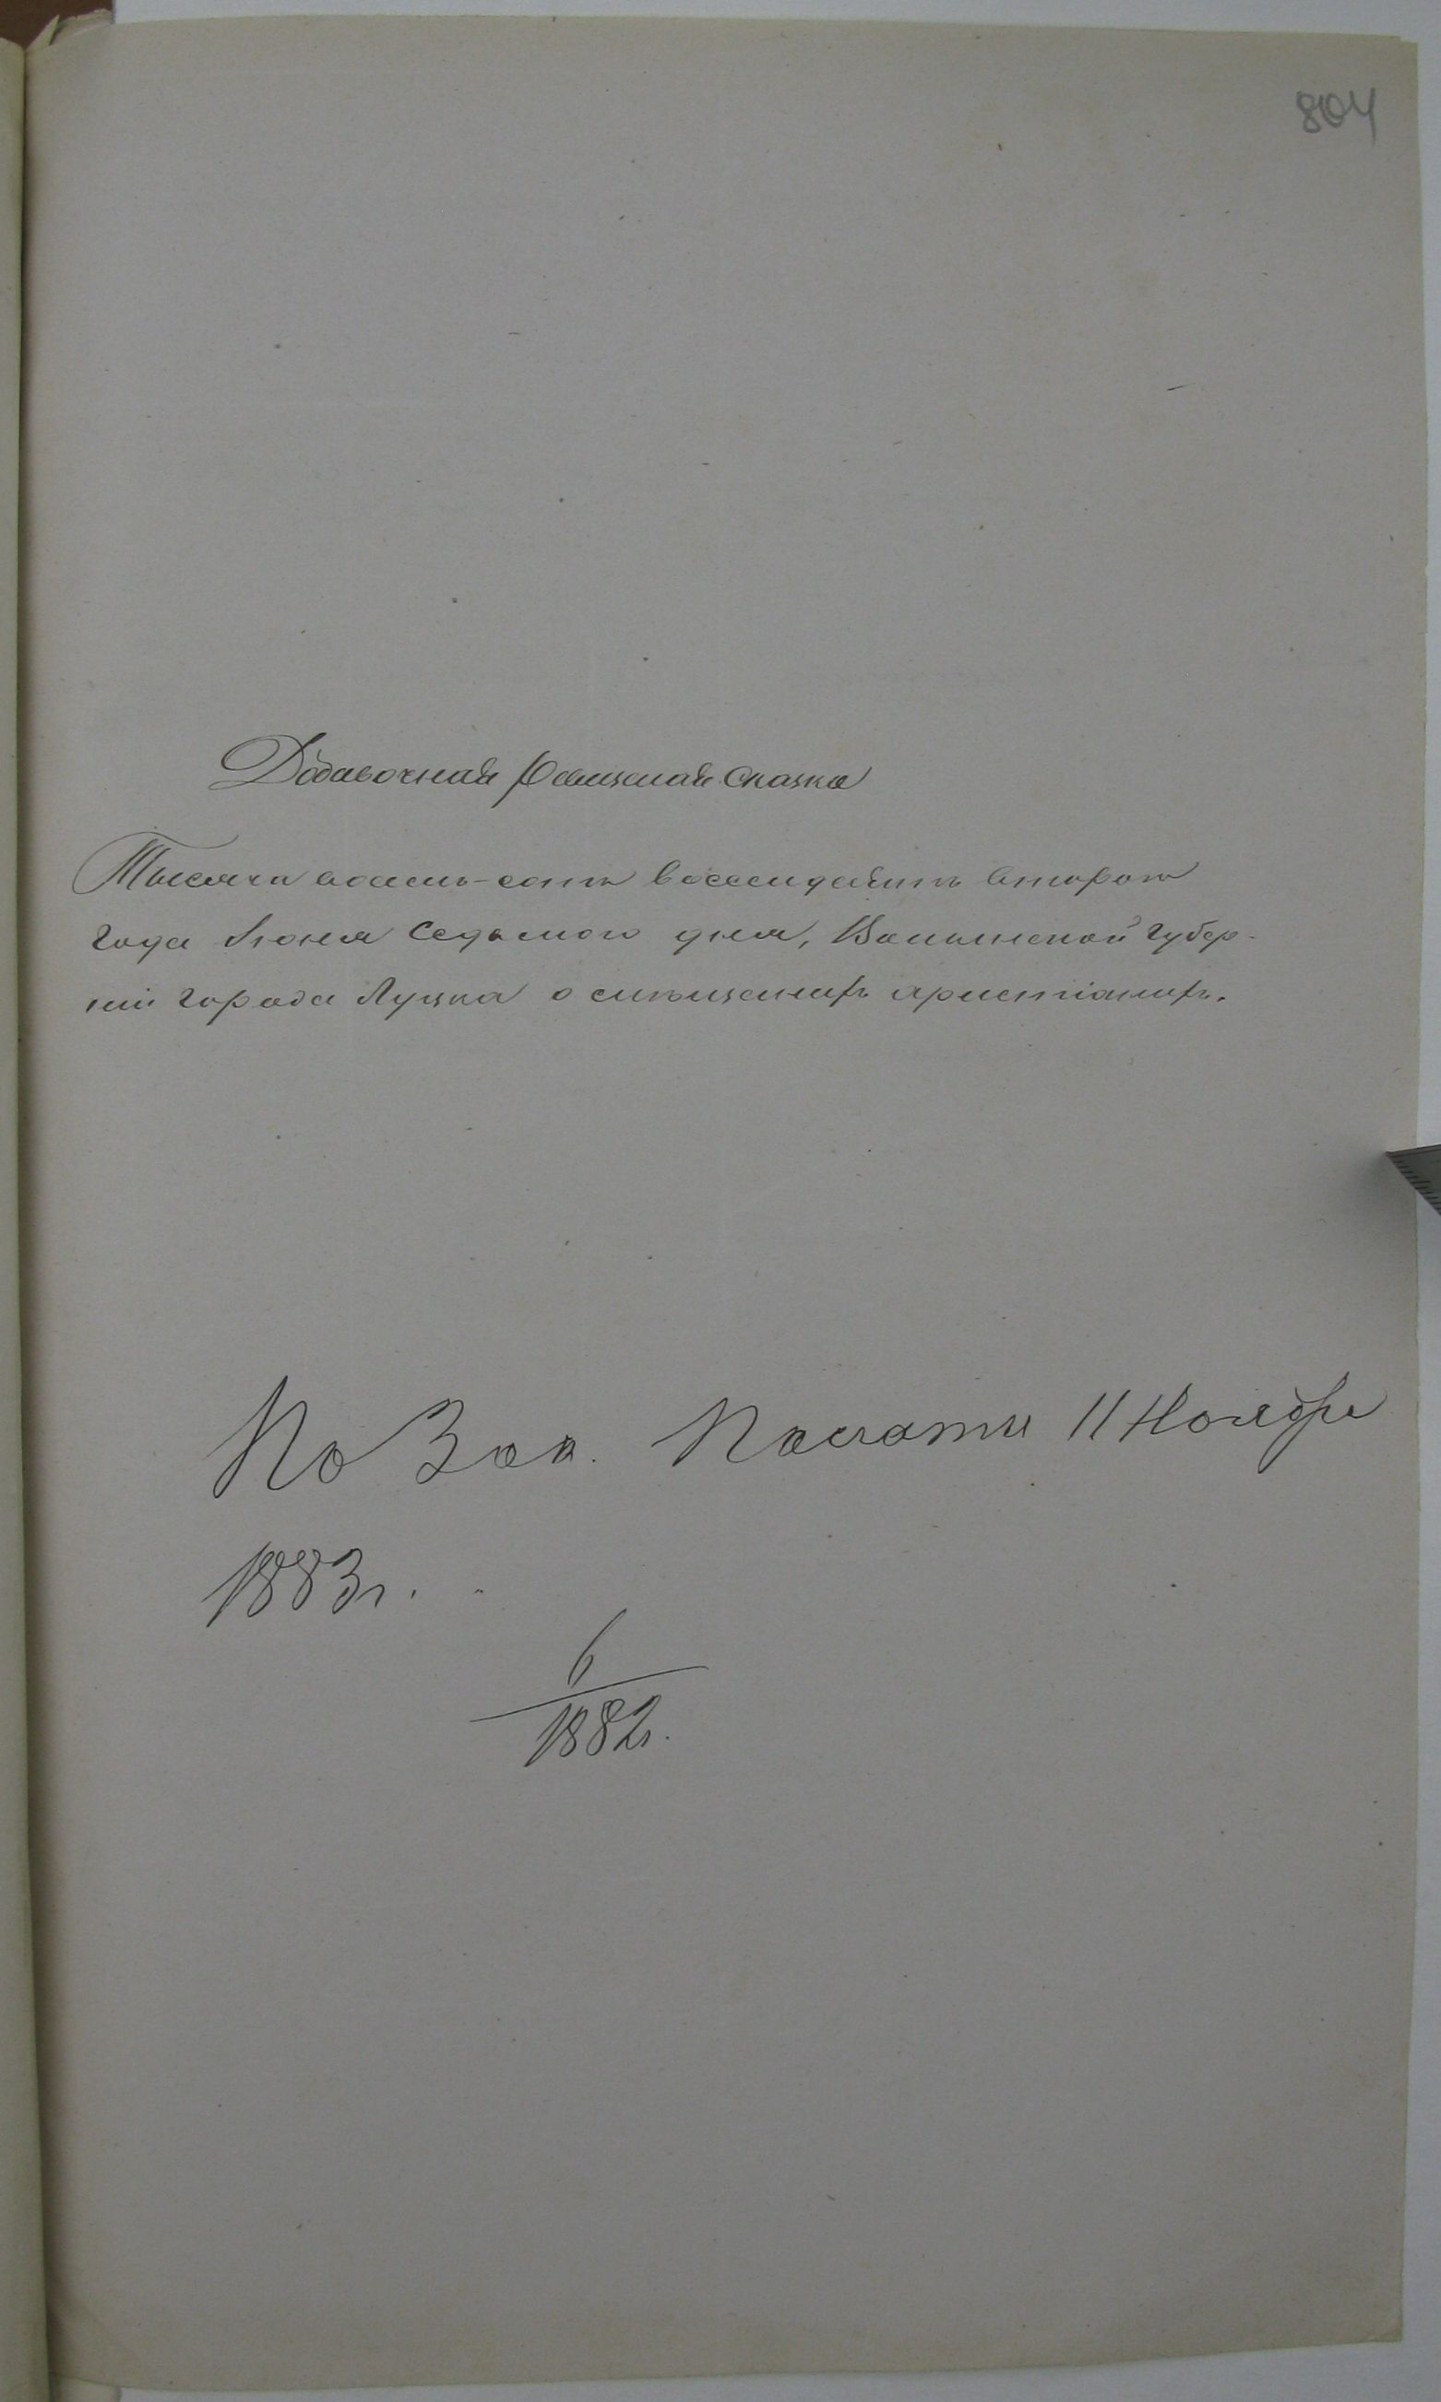 804
Добавочная Ревизская Сказка
Тысяча восемь-сотъ восемьдесятъ втораго
года Июня Седьмого дня, Волынской губер-
ніи города Луцка о христіанахъ.
По Зак. Палаты 11 Ноября
1883 г.
6
1882 г.